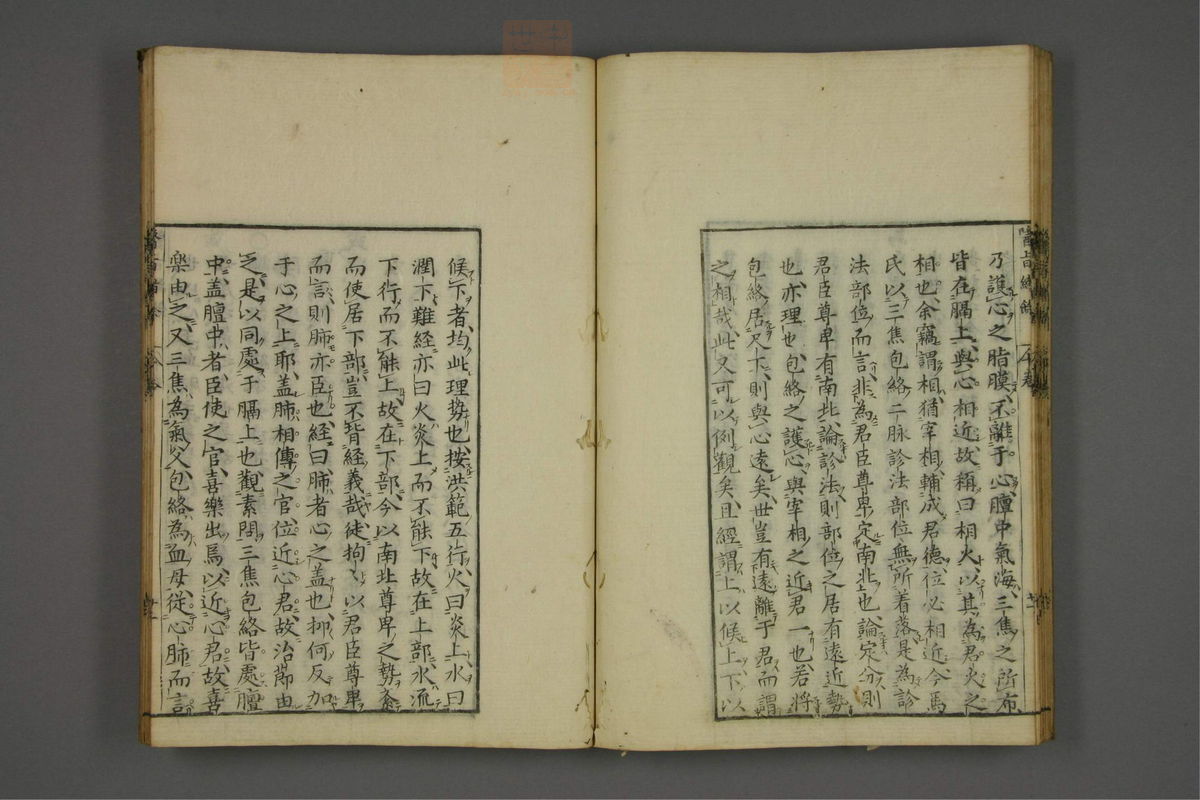 乃護心之脂膜不離于心膻中氣海三焦之所布
皆在膈上與心相近故稱曰相火以其為君火之
相也余竊謂相猶宰相輔成君德位必相近今馬
氏以三焦包絡二脉診法部位無所着落是為診
法部位而言非為君臣尊卑定南北也論定分則
君臣尊卑有南北論診法則部位之居有遠近勢
也亦理也包絡之護心與宰相之近君一也若將
包絡居尺下則與心遠矣世豈有遠離于君而謂
之相哉此又可以例觀矣且經謂上以候上下以
候下者均此理勢也按洪範五行火曰炎上水曰
潤下難經亦曰火炎上而不能下故在上部水流
下行而不能上故在下部今以南北尊卑之勢紊
而使居下部豈不背經義哉徒拘〻以君臣尊卑
而言則肺亦臣也經曰肺者心之盖也抑何反加
于心之上耶盖肺相傳之官位近心君故治節由
之是以同處于膈上也觀素問三焦包絡皆處膻
中盖膻中者臣使之官喜樂出焉以近心君故喜
樂由之又三焦為氣父包絡為血母従心肺而言